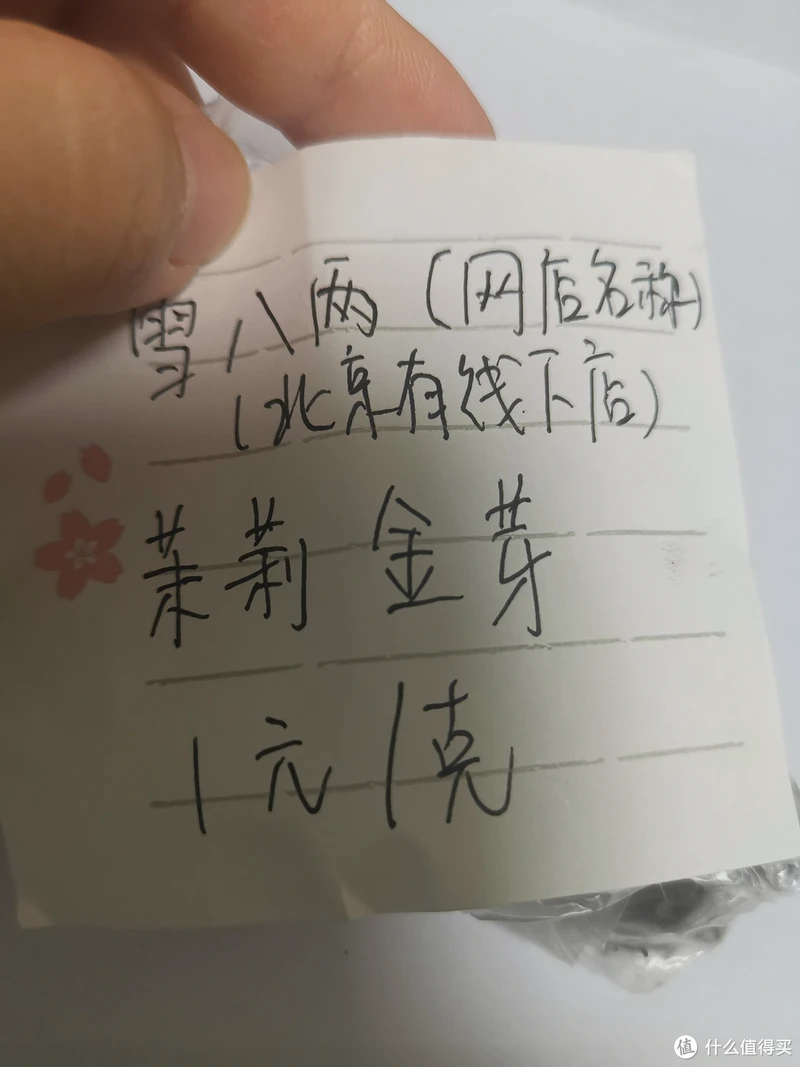 雪八两（网店名称）
（北京有线下店）
茉莉金芽
1元1克
什么值得买